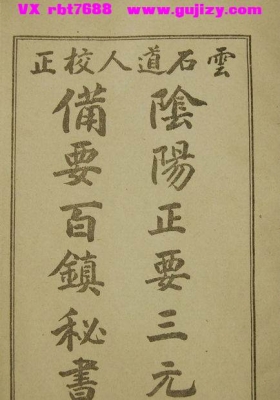 VX rbt7688 www.gujizy.com
雲石道人校正
陰陽正要三元
備要百鎮秘書